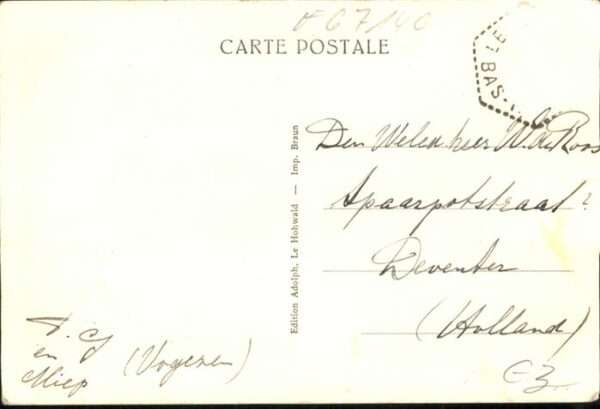 067/40
CARTE POSTALE
BAS-
Edition Adolph, Le Hohwald — Imp. Braun
Den Weled. heer W. de Roos
Spaarpotstraat 2
Deventer
(Holland)
en
Miep
(Vogezen)